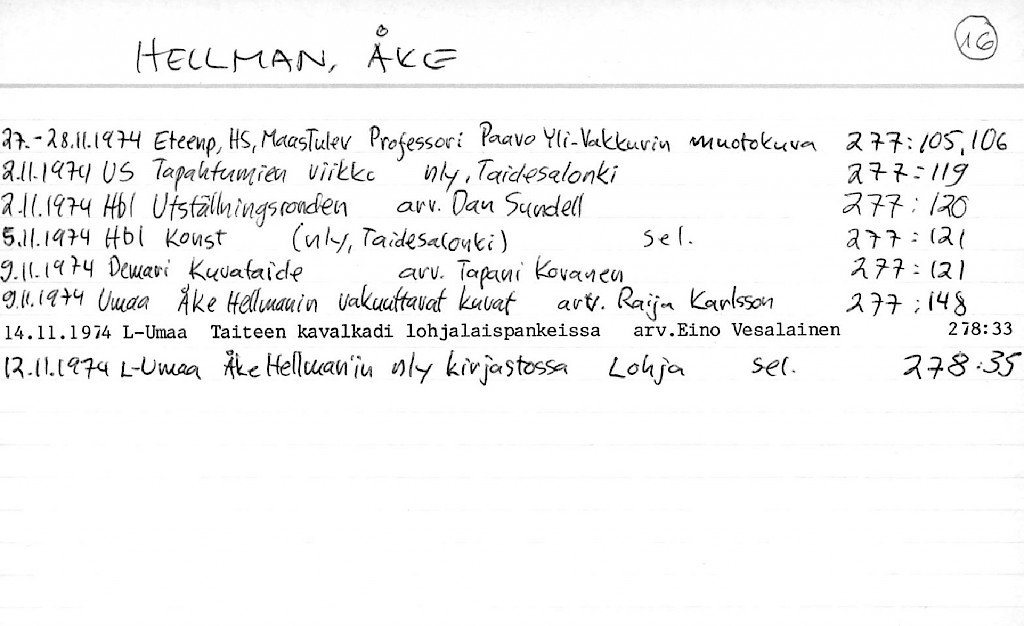 HELLMAN, ÅKE 16
27.-28.11.1974 Eteenp, HS, MaasTulev Professori Paavo Yli-Vakkurin muotokuva 277:105,106
2.11.1974 US Tapahtumien viikko nly, Taidesalonki 277:119
2.11.1974 Hbl Utställningsronden arv. Dan Sundell 277:120
5.11.1974 Hbl Konst (nly, Taidesalonki) sel. 277:121
9.11.1974 Demari Kuvataide arv. Tapani Kovanen 277:121
9.11.1974 Umaa Åke Hellmanin vakuuttavat kuvat arv. Raija Karlsson 277:148
14.11.1974 L-Umaa Taiteen kavalkadi lohjalaispankeissa arv.Eino Vesalainen 278:33
12.11.1974 L-Umaa Åke Hellman'in nly kirjastossa Lohja sel. 278:35